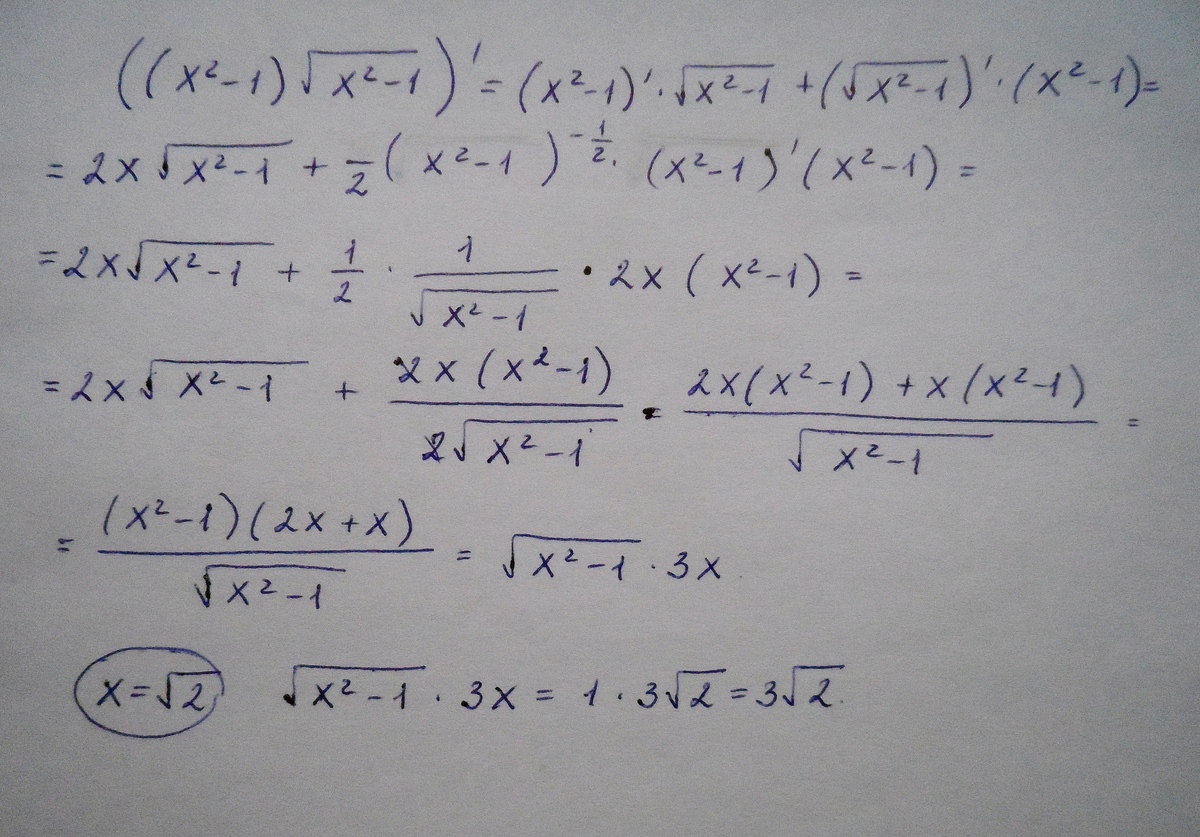 ((x²-1)√(x²-1))' = (x²-1)'·√(x²-1) + (√(x²-1))'·(x²-1) =
= 2x√(x²-1) + 1/2(x²-1)^(-1/2)·(x²-1)'(x²-1) =
= 2x√(x²-1) + 1/2 · 1/√(x²-1) · 2x(x²-1) =
= 2x√(x²-1) + 2x(x²-1)/2√(x²-1) = (2x(x²-1) + x(x²-1))/√(x²-1) =
= (x²-1)(2x+x)/√(x²-1) = √(x²-1) · 3x
x=√2 √(x²-1) · 3x = 1·3√2 = 3√2.